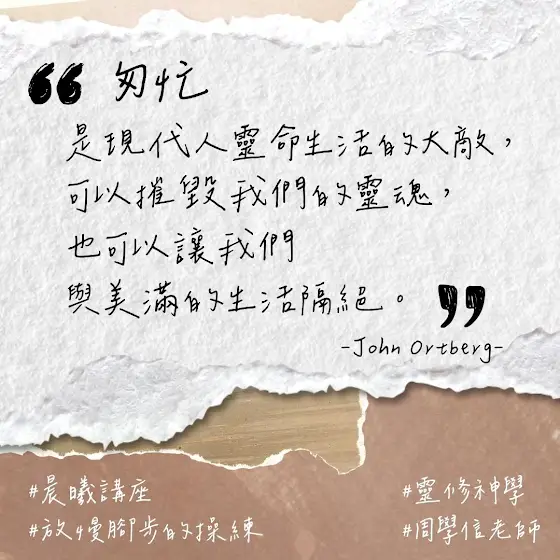 “ 匆忙
是現代人靈命生活的大敵,
可以摧毀我們的靈魂,
也可以讓我們
與美滿的生活隔絕。”
-John Ortberg-
#晨曦講座
#靈修神學
#放慢腳步的操練
#周學信老師